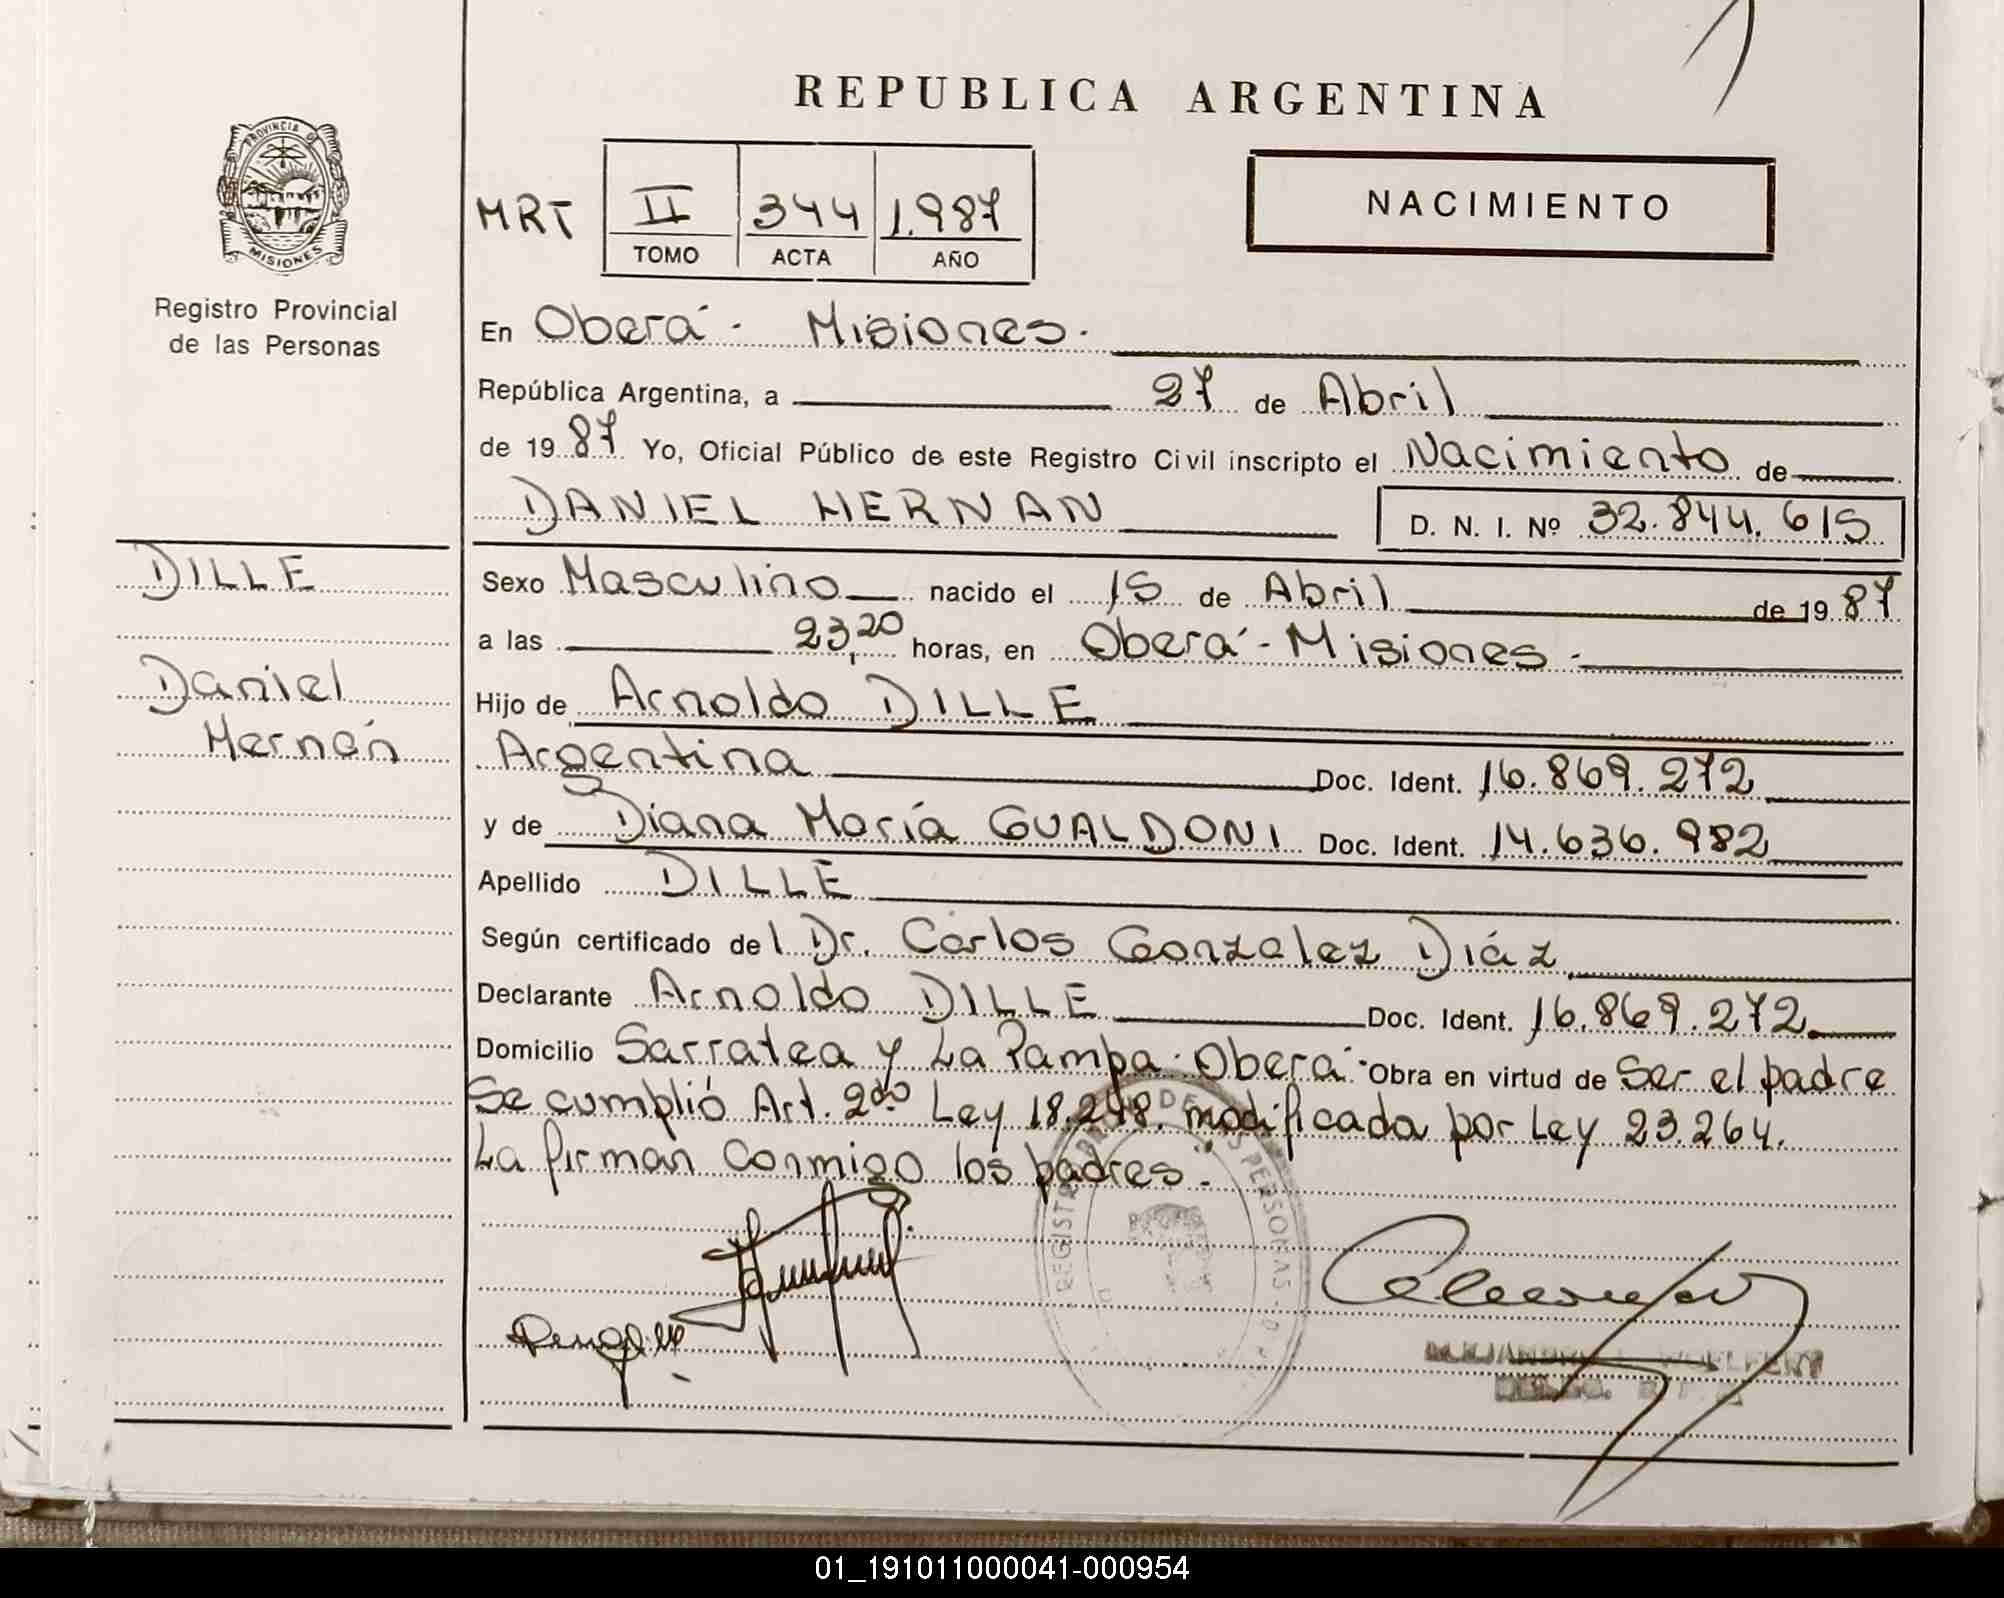 REPUBLICA ARGENTINA
PROVINCIA D
MISIONES
Registro Provincial
de las Personas
MRT II 344 1.987
TOMO ACTA AÑO
NACIMIENTO
En Oberá - Misiones.
República Argentina, a 27 de Abril
de 1987 Yo, Oficial Público de este Registro Civil inscripto el Nacimiento de
DANIEL HERNAN D. N. I. Nº 32.844.615
DILLE
Daniel
Hernán
Sexo Masculino nacido el 15 de Abril de 1987
a las 23,20 horas, en Oberá - Misiones -
Hijo de Arnoldo DILLE
Argentina Doc. Ident. 16.869.272
y de Diana María GUALDONI Doc. Ident. 14.636.982
Apellido DILLE
Según certificado del Dr. Carlos Gonzalez Diáz
Declarante Arnoldo DILLE Doc. Ident. 16.869.272
Domicilio Sarratea y La Pampa - Oberá - Obra en virtud de Ser el padre
Se cumplió Art. 2do Ley 18.248. modificada por Ley 23.264.
La firman conmigo los padres".
DE PERSONAS
01_191011000041-000954